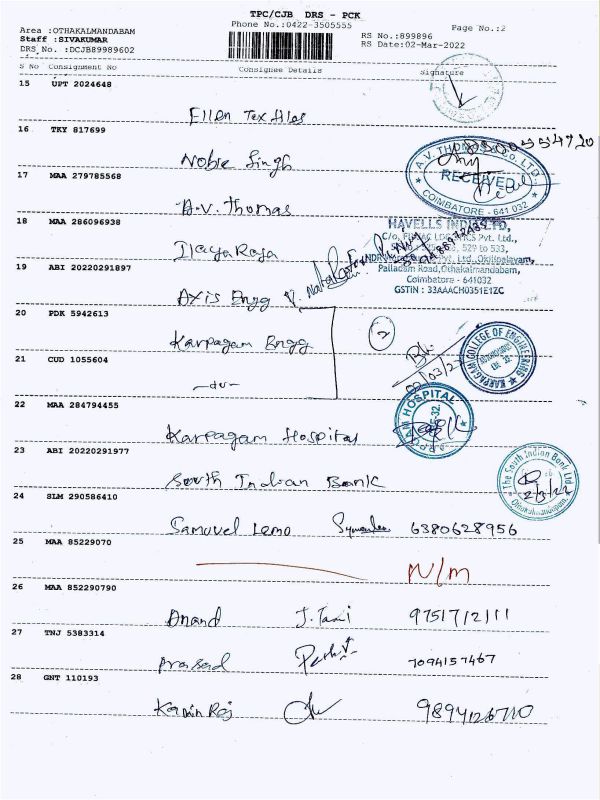 TPC/CJB DRS - PCK
Area :OTHAKALMANDABAM
Phone No.:0422-3505555
Page No.:2
Staff :SIVAKUMAR
RS No.:899896
DRS No. :DCJB89989602
RS Date:02-Mar-2022
S No Consignment No Consignee Details Signature
15 UPT 2024648
Ellen Textiles
16 TKY 817699
Noble Singh
17 MAA 279785568
A.V. THOMAS & Co. LTD.
RECEIVED
COIMBATORE - 641 032
A.V. Thomas
18 MAA 286096938
HAVELLS INDIA LTD,
Pvt. Ltd.,
529 to 533,
Pvt. Ltd, Okkilipalayam,
Palladam Road,Othakalmandabam,
Coimbatore - 641032
GSTIN : 33AAACH0351E1ZC
Ilaya Raja
19 ABI 20220291897
Axis Engg
20 PDK 5942613
Karpagam Engg
2
KARPAGAM COLLEGE OF ENGINEERING
21 CUD 1055604
-do-
02/03/22
22 MAA 284794455
HOSPITAL
Karpagam Hospital
23 ABI 20220291977
South Indian Bank
The South Indian Bank Ltd
2/3/22
24 SLM 290586410
Samuvel Lemo 6380628956
25 MAA 85229070
N/M
26 MAA 852290790
Anand 9751712111
27 TNJ 5383314
Prasad 7094157467
28 GNT 110193